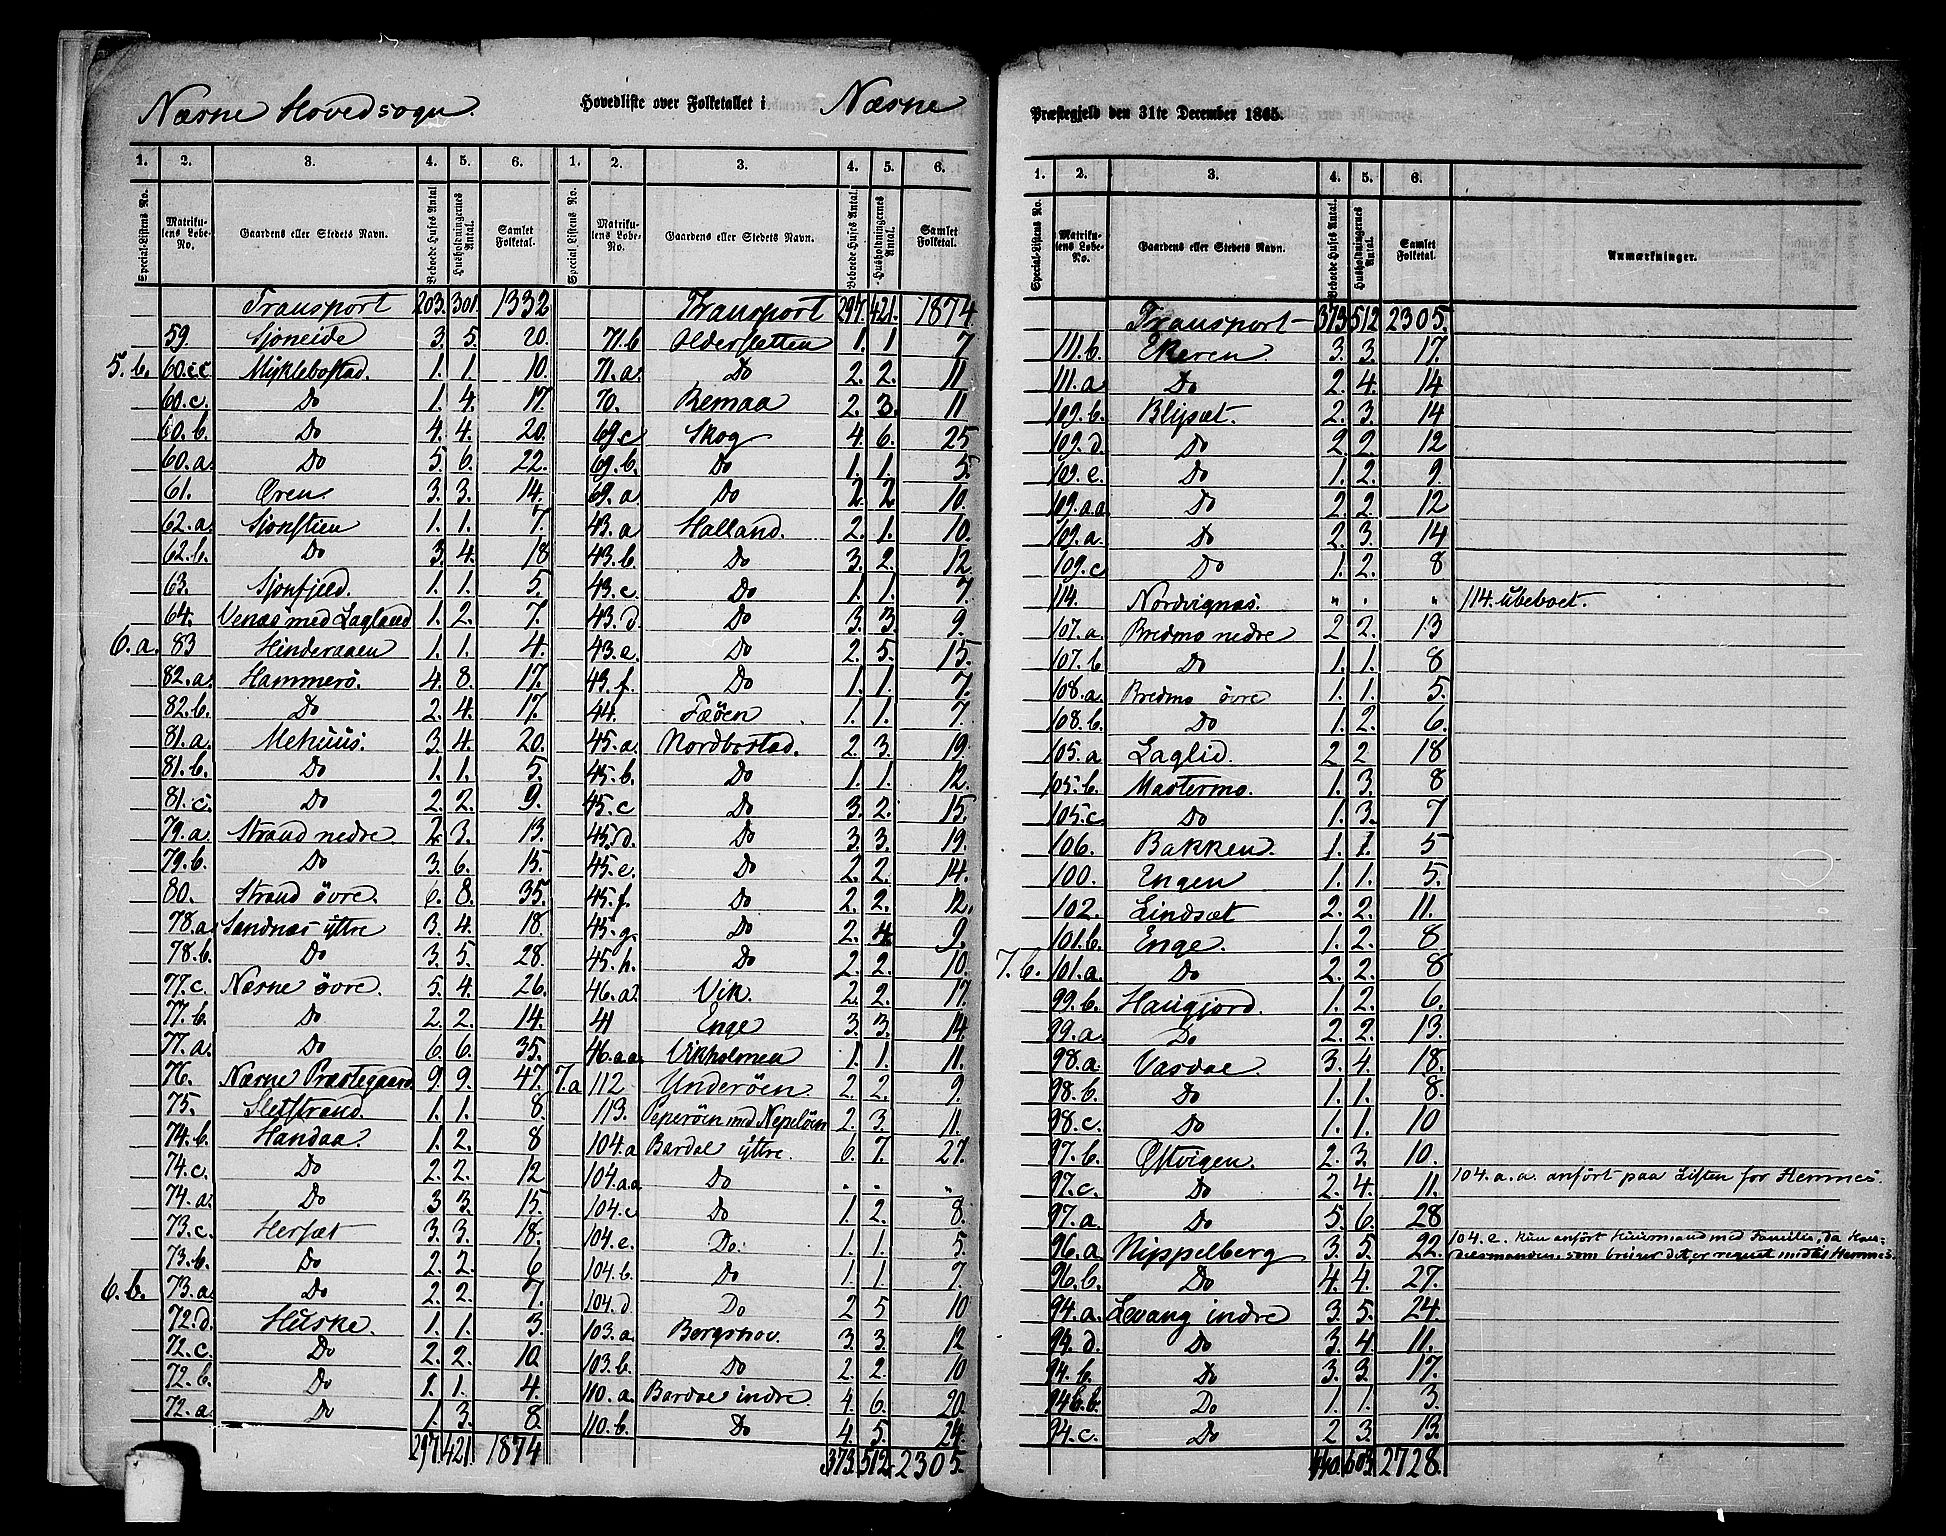 Næsne Hovedsogn. Hovedliste over Folketallet i Næsne
Præstegjeld den 31te December 1865.
1. 2. 3. 4. 5. 6. 1. 2. 3. 4. 5. 6.
Special-Listens No. Matrikulens Løbe-No. Gaardens eller Stedets Navn. Beboede Huses Antal Husholdningernes Antal. Samlet Folketal. Special Listens No. Matrikulens Løbe-No. Gaardens eller Stedets Navn. Beboede Huses Antal. Husholdningernes Antal. Samlet Folketal.
Transport 203. 301. 1332
59. Sjoneide 3. 5. 20.
5.b. 60.cc Myklebostad. 1. 1. 10.
60.c. Do 1. 4. 17.
60.b. Do 4. 4. 20.
60.a. Do 5. 6. 22.
61. Øren 3. 3. 14.
62.a. Sjonstien 1. 1. 7.
62.b. Do 3. 4. 18
63. Sjonfjeld. 1. 1. 5.
64. Venæs med Lagland 1. 2. 7.
6.a. 83 Hinderaaen 1. 1. 4.
82.a. Hammerö. 4. 8. 17.
82.b. Do 2. 4. 17.
81.a. Mehuus. 3. 4. 20.
81.b. Do 1. 1. 5.
81.c. Do 2. 2. 9.
79.a. Strand nedre 2. 3. 13.
79.b. Do 3. 6. 15.
80. Strand övre. 6. 8. 35.
78.a. Sandnæs ijttre 3. 4. 18.
78.b. Do 3. 5. 28.
77.c. Næsne övre. 5. 4. 26.
77.b. Do 2. 2. 14.
77.a. Do 6. 6. 35.
76. Næsne Præstegaard. 9. 9. 47.
75. Sletstrand. 1. 1. 8.
74.b. Handaa. 1. 2. 8
74.c. Do 2. 2. 12
74.a. Do 3 3. 15.
73.c. Hersæt 3. 3. 18.
73.b. Do 2. 2. 6
6.b. 73.a. Do 2. 2. 7.
72.d. Huske. 1. 1. 3.
72.c. Do 2. 2. 10.
72.b. Do 1. 1. 4.
72.a. Do 1. 3. 8.
297. 421. 1874
Transport 297. 421. 1874.
71.b Olderskatten 1. 1 7
71.a. Do 2. 2. 11
70. Remaa 2. 3. 11
69.c Skog 4. 6. 25
69.b. Do 1. 1. 5.
69.a. Do 2. 2 10.
43.a. Halland. 2. 1. 10.
43.b. Do 3. 2. 12.
43.c. Do 1. 1. 7.
43.d Do 3. 3 9.
43.e. Do 2. 5. 15.
43.f. Do 1. 1. 7.
44. Fæöen 1. 1. 7.
45.a. Nordbostad. 2. 3. 19.
45.b. Do 1. 1. 12.
45.c Do 3. 2. 15.
45.d. Do 3. 3. 19.
45.e. Do 2. 2. 14.
45.f. Do 2. 2. 12.
45.g. Do 2. 4. 9.
45.h. Do 2. 2. 10.
46.a. Vik. 2. 2. 17.
41 Enge 3. 3. 14.
46.aa. Vikholmen 1. 1. 11.
7.a 112 Underöen 2. 2. 9.
113. Peperöen med Nepelöen 2. 3. 11.
104.a Bardal ijttre. 6. 7. 27.
104.aa Do . . "
104.c Do 1. 2. 8.
104.e. Do. 1. 1. 5.
104.b. Do 1. 1. 7.
104.d Do 2 5 10
103.a. Bergshov. 3. 3. 12
103.b. Do 2. 2. 10
110.a. Bardal indre 4. 6. 20.
110.b. Do 4. 5. 24.
373. 512. 2305.
1. 2. 3. 4. 5. 6.
Special-Listens No. Matrikulens Løbe-No. Gaardens eller Stedets Navn. Beboede Huses Antal. Husholdningernes Antal. Samlet Folketal. Anmærkninger.
Transport 373 512 2305.
111.b. Ekeren 3. 3. 17.
111.a Do 2. 4. 14
109.b. Blijsæt. 2. 3. 14
109.d. Do 2. 2. 12
109.e. Do 1. 2. 9.
109.aa Do 2 2. 12
109.a. Do 2. 3. 14
109.c Do 1. 2. 8
114. Nordvignæs. " . " 114. ubeboet.
107.a. Bredmo nedre 2. 2. 13
107.b Do 1. 1. 8
108.a. Bredmo övre 1. 1. 5.
108.b. Do 1. 2. 6.
105.a Laglid. 2 2. 18
105.b. Mastermo. 1. 3. 8
105.c Do 1. 3. 7
106. Bakken. 1. 1. 5
100. Engen 1. 1. 5.
102. Lindsæt 2. 2. 11.
101.b. Enge. 1. 2. 8
7.b. 101.a. Do 2. 2. 8
99.b. Haugjord. 1. 2. 6.
99.a. Do 2. 2. 13.
98.a. Vasdal 3. 4. 18.
98.b. Do 1. 1. 8.
98.c. Do 1. 1. 10
97.b. Østvigen. 2. 3. 10.
97.c. Do 2. 4. 11. 104.a.a. anfört paa Listen for Hemnes.
97.a. Do 5. 6. 28
96.a. Nippelberg 3. 5. 22. 104.e. Kun anfört Huusmand med Familie, da Kan-
delsmanden, som bruger det, er regnet med til Hemnes.
96.b. Do 4. 4. 27.
94.a. Levang indre 3. 5. 24.
94.d. Do 3. 4. 11.
94.b. Do 3. 3. 17.
94b.b. Do 1. 1. 3.
94.c. Do 2 3. 13.
440. 603. 2728.